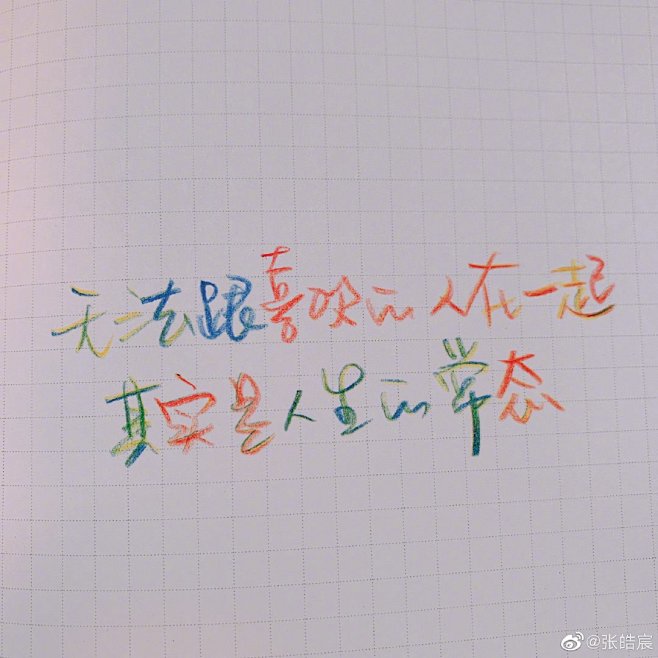 无法跟喜欢的人在一起
其实是人生的常态
@张皓宸